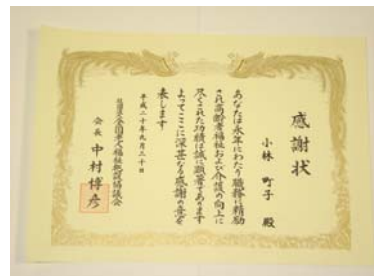 感謝状
小林 町子 殿
あなたは永年にわたり職務に精励
され高齢者福祉および介護の向上に
尽くされた功績は誠に顕著であります
よってここに深甚なる感謝の意を
表します
平成二十年九月三十日
社団法人全国老人福祉施設協議会
会長 中村博彦